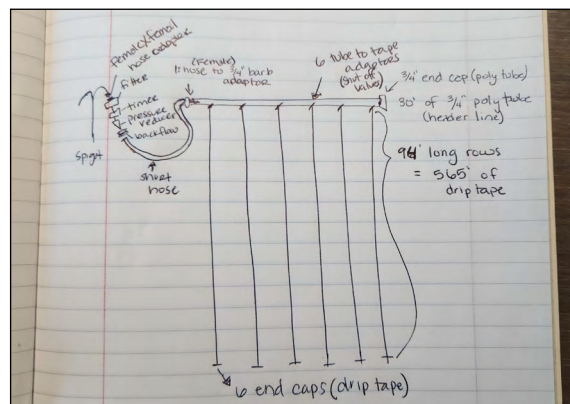 Female x female
hose adaptor
filter
timer
pressure
reducer
backflow
spigot
short
hose
(Female)
hose to 3/4" barb
adaptor
6 tube to tape
adaptors
(shut off
valve)
3/4" end cap (poly tube)
30' of 3/4" poly tube
(header line)
94' long rows
= 565' of
drip tape
6 end caps (drip tape)